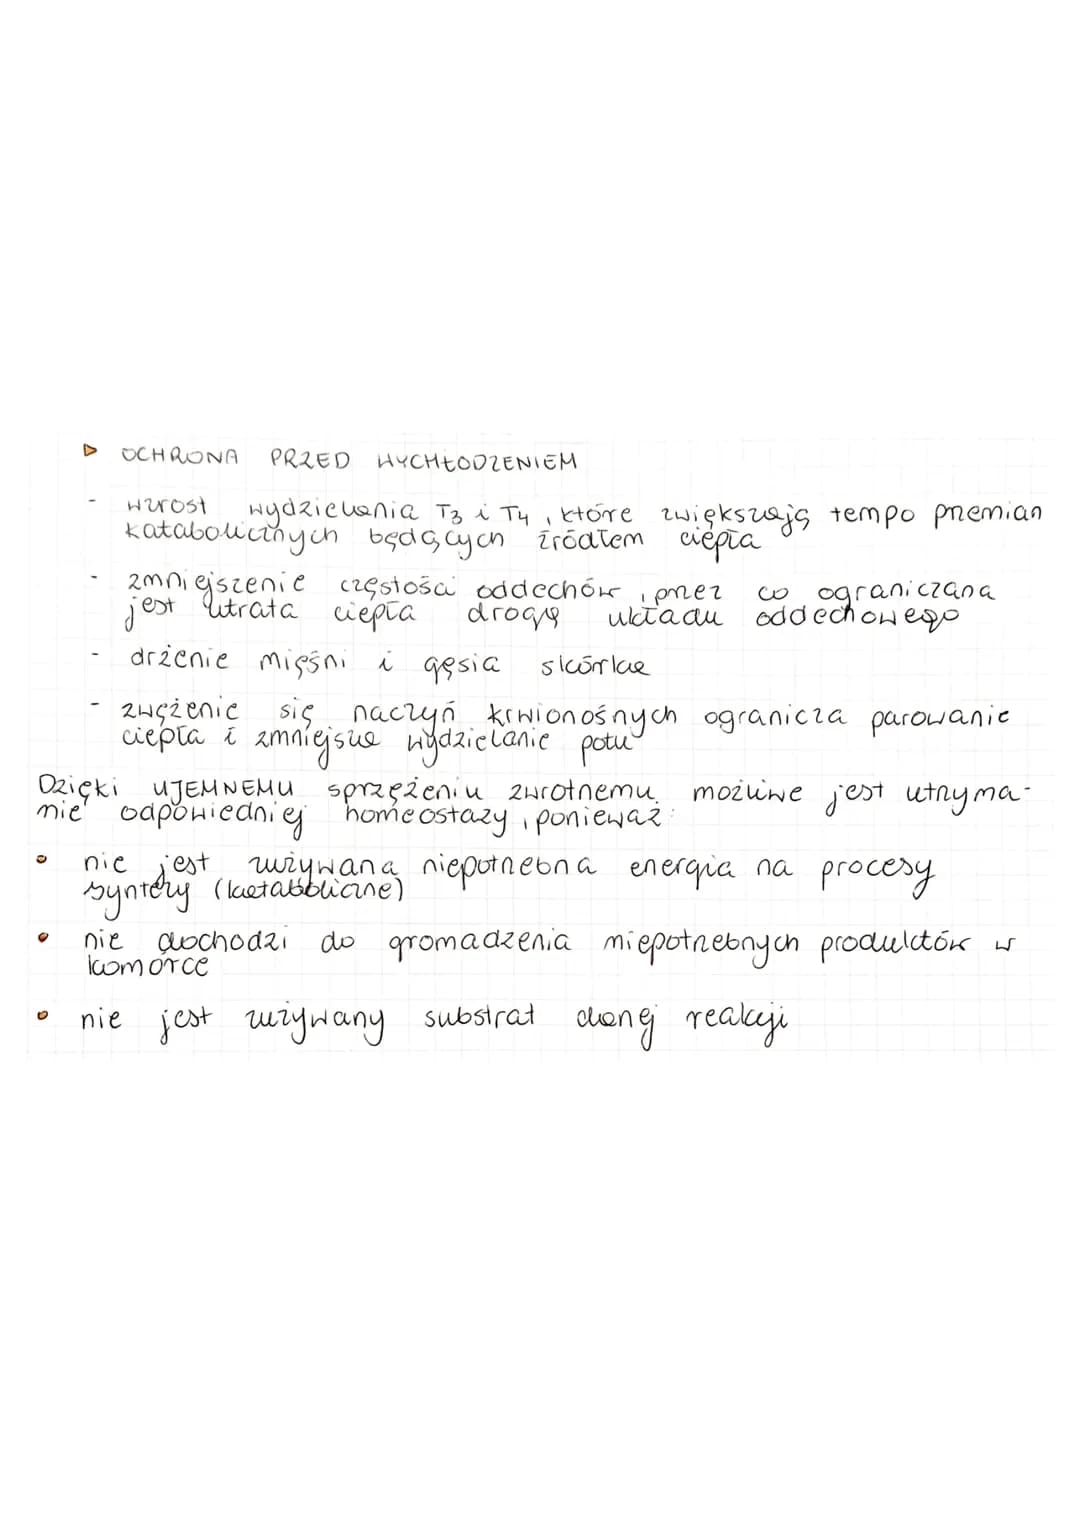 OCHRONA PRZED WYCHŁODZENIEM
- wzrost wydzielania T3 i T4, które zwiększają tempo przemian
katabolicznych będących źródłem ciepła
- zmniejszenie częstości oddechów, przez co ograniczana
jest utrata ciepła drogą układu oddechowego
- drżenie mięśni i gęsia skórka
- zwężenie się naczyń krwionośnych ogranicza parowanie
ciepła i zmniejsza wydzielanie potu
Dzięki UJEMNEMU sprzężeniu zwrotnemu możliwe jest utrzyma-
nie odpowiedniej homeostazy, ponieważ:
• nie jest zużywana niepotrzebna energia na procesy
syntezy (kataboliczne)
• nie dochodzi do gromadzenia niepotrzebnych produktów w
komórce
• nie jest zużywany substrat danej reakcji